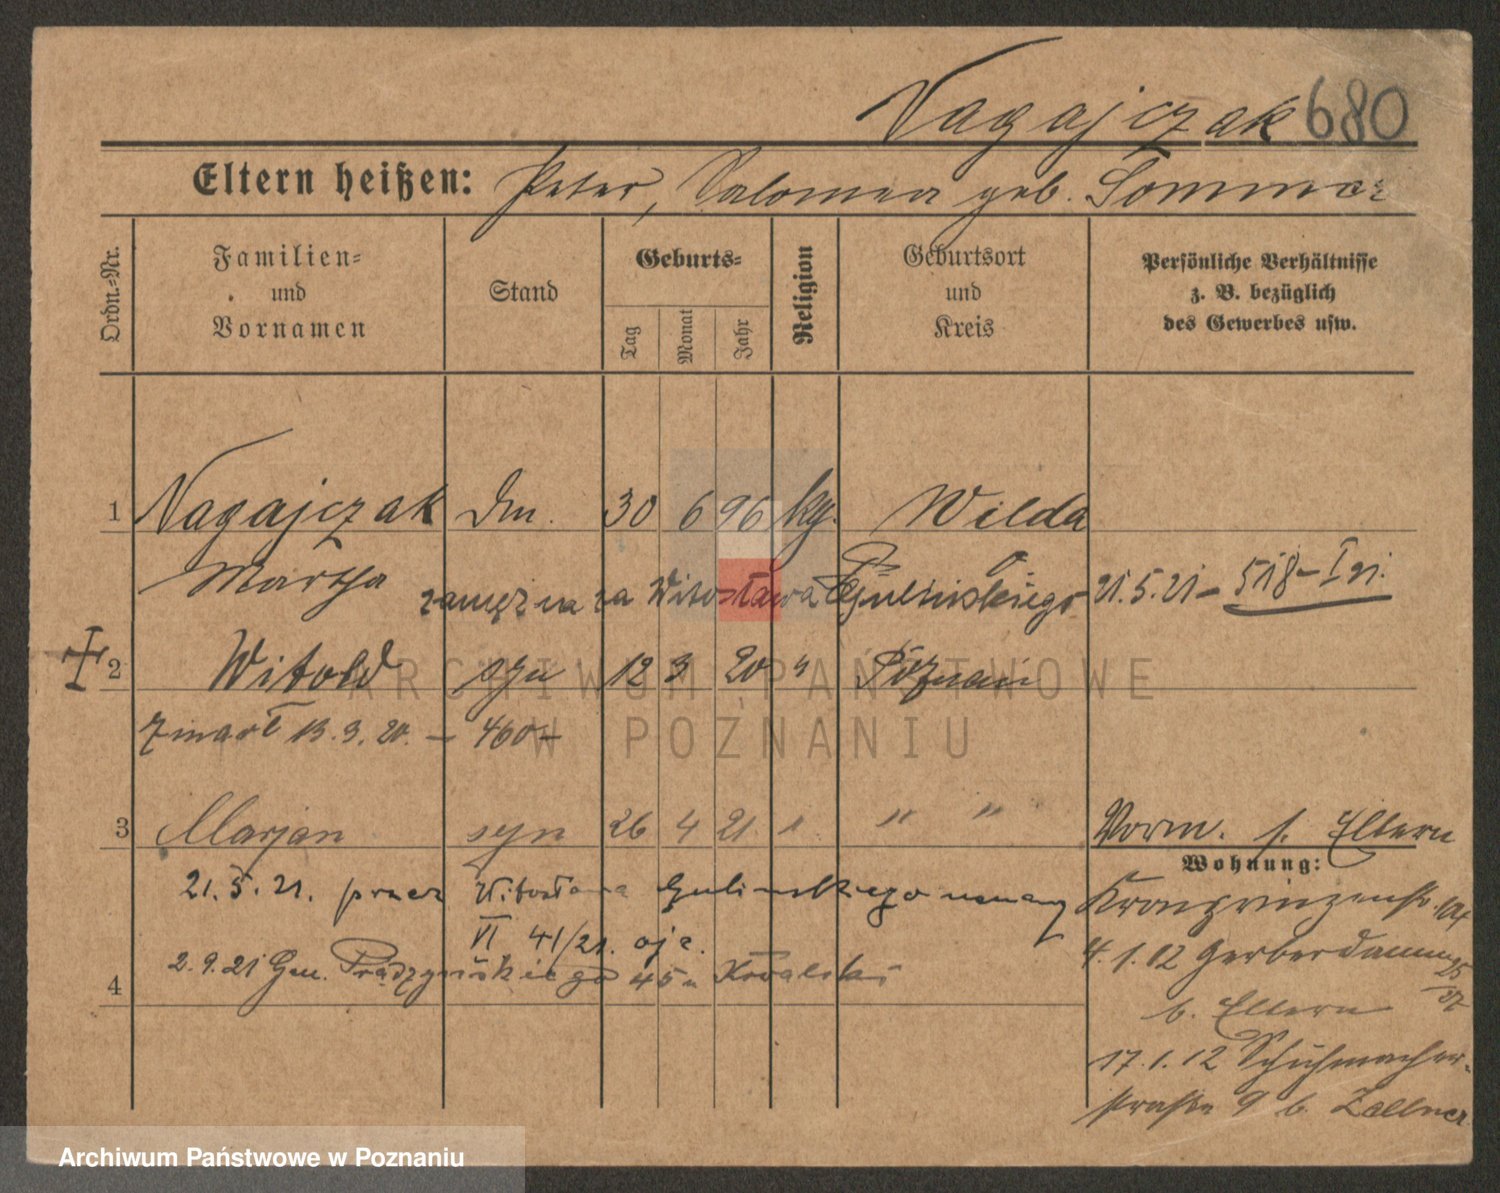 Nagajczak 680
Eltern heißen: Peter, Salomea geb. Sommer
Ordn.-Nr.
Familien- und Vornamen
Stand
Geburts-
Tag
Monat
Jahr
Religion
Geburtsort und Kreis
Persönliche Verhältnisse
z. B. bezüglich
des Gewerbes usw.
1 Nagajczak Dm. 30 6 96 kg. Wilda
Martha
zamężna za Witosława 21.5.21 - 518 - I
2 Witold syn 12 3 20 " Poznań
zmarł 13.3.20. - 460 -
3 Marjan syn 26 4 21 " " "
Vorm. s. Eltern
Wohnung:
21.5.21. przez Witosława Gulinskiego
Kronprinzenstr.
VI 41/21.
4.1.12 Gerberdamm
2.9.21 Gen. Prądzyńskiego 45 Kowalski
4
b. Eltern
17.1.12 Schuhmacher-
straße 9 b. Zellner
ARCHIWUM PAŃSTWOWE
W POZNANIU
Archiwum Państwowe w Poznaniu